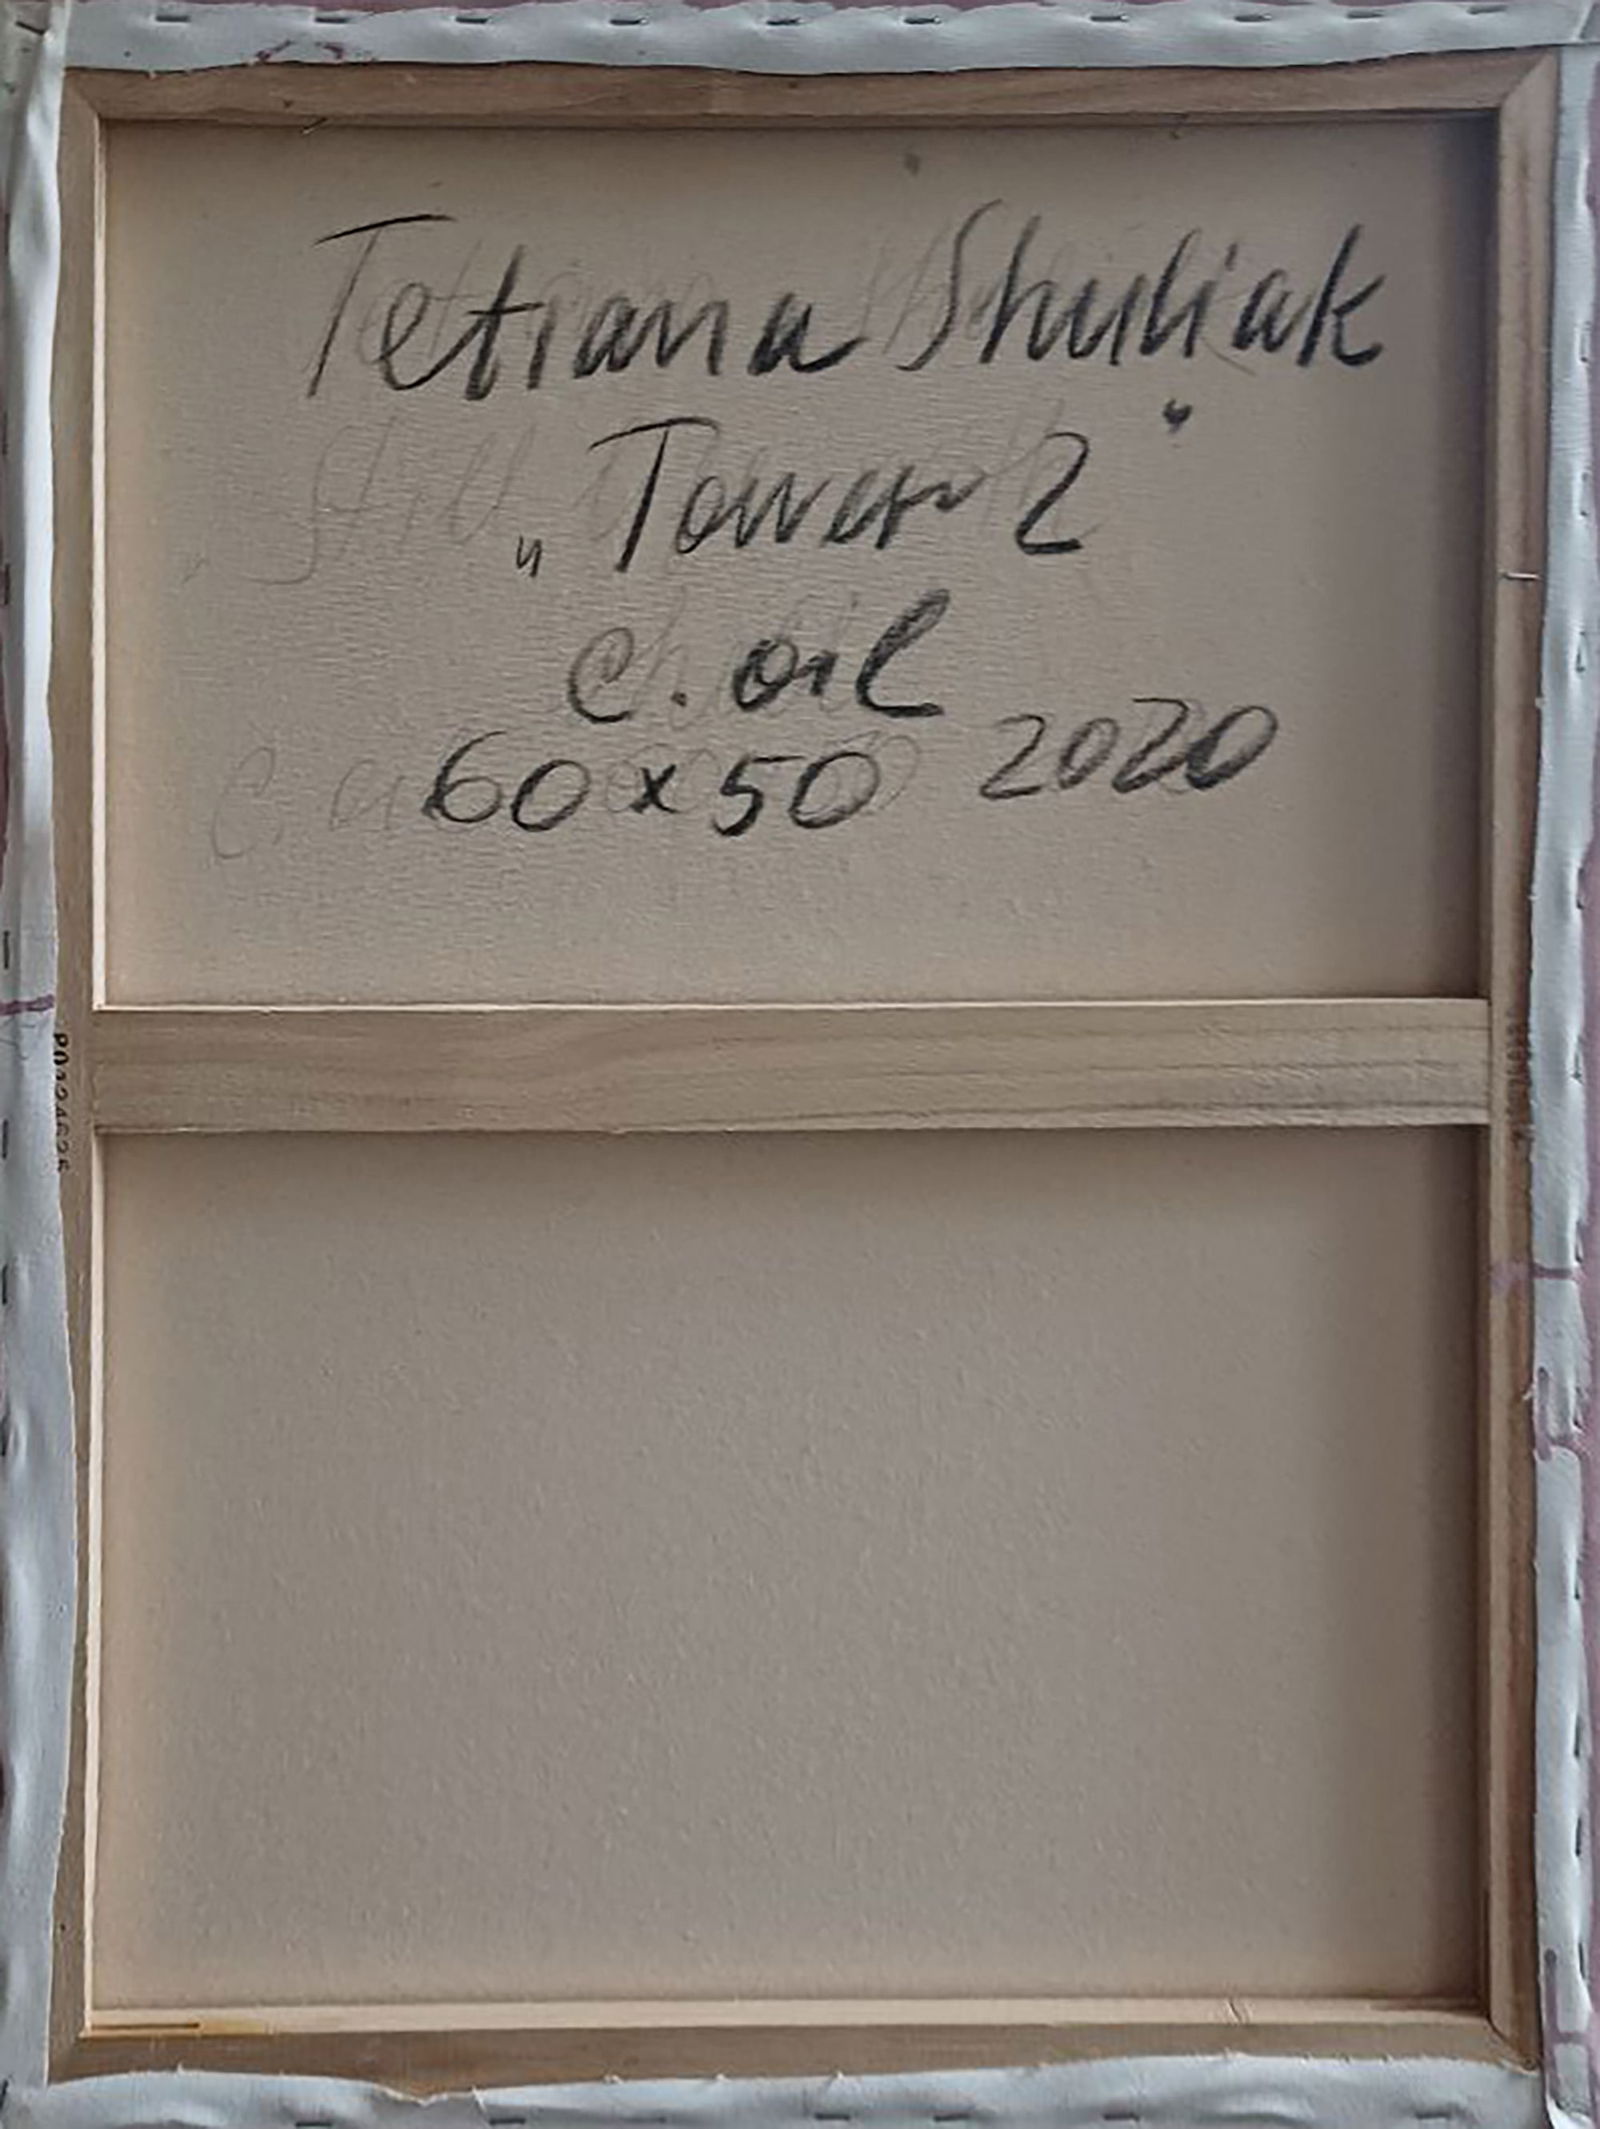 Tetiana Shuliak
„Tower 2"
c. oil
60 x 50 2020